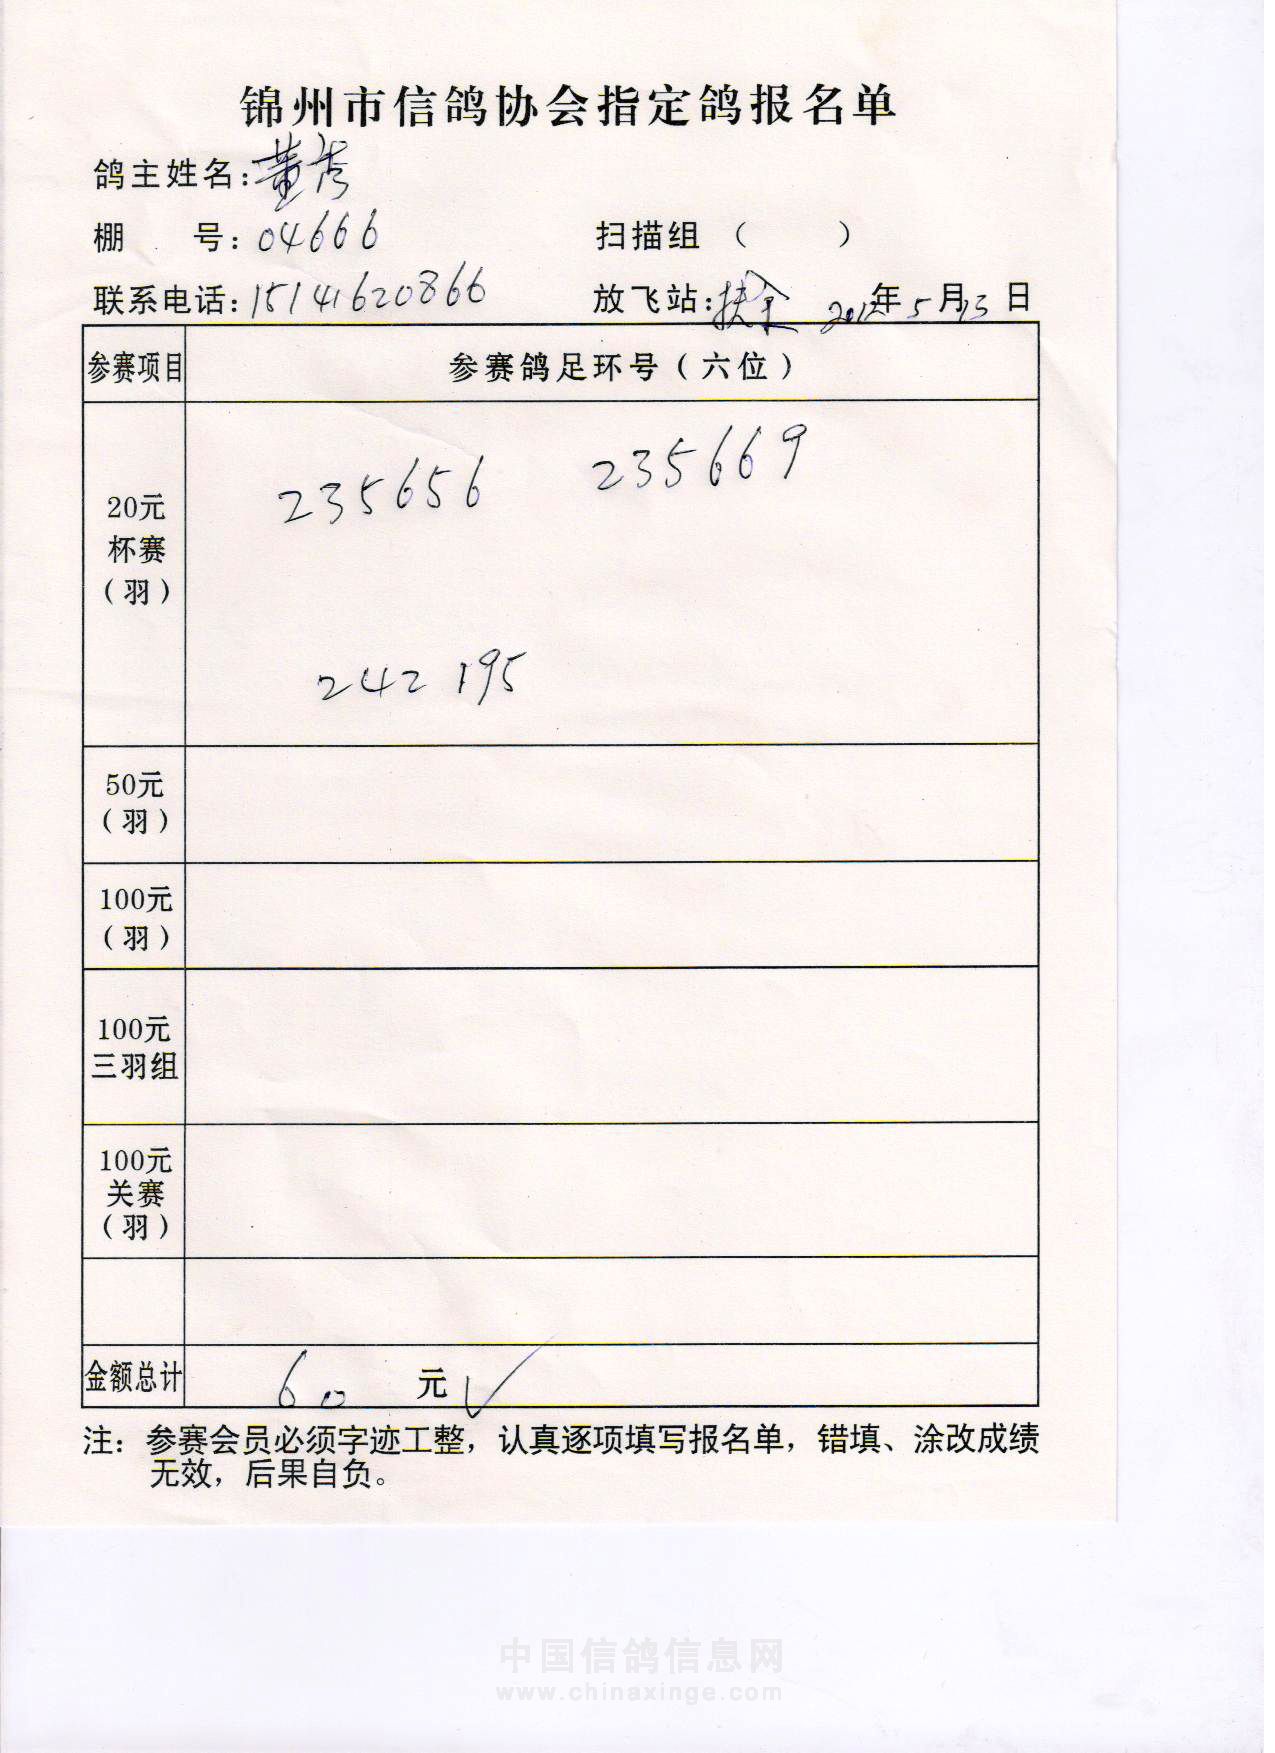 锦州市信鸽协会指定鸽报名单
鸽主姓名:黄
棚 号:04666 扫描组 ( )
联系电话:15141620866 放飞站:扶余 2012年5月13日
参赛项目 参赛鸽足环号(六位)
235656 235669
20元
杯赛
(羽)
242195
50元
(羽)
100元
(羽)
100元
三羽组
100元
关赛
(羽)
金额总计 60 元
注: 参赛会员必须字迹工整, 认真逐项填写报名单, 错填、涂改成绩
无效, 后果自负。
中国信鸽信息网
www.chinaxinge.com